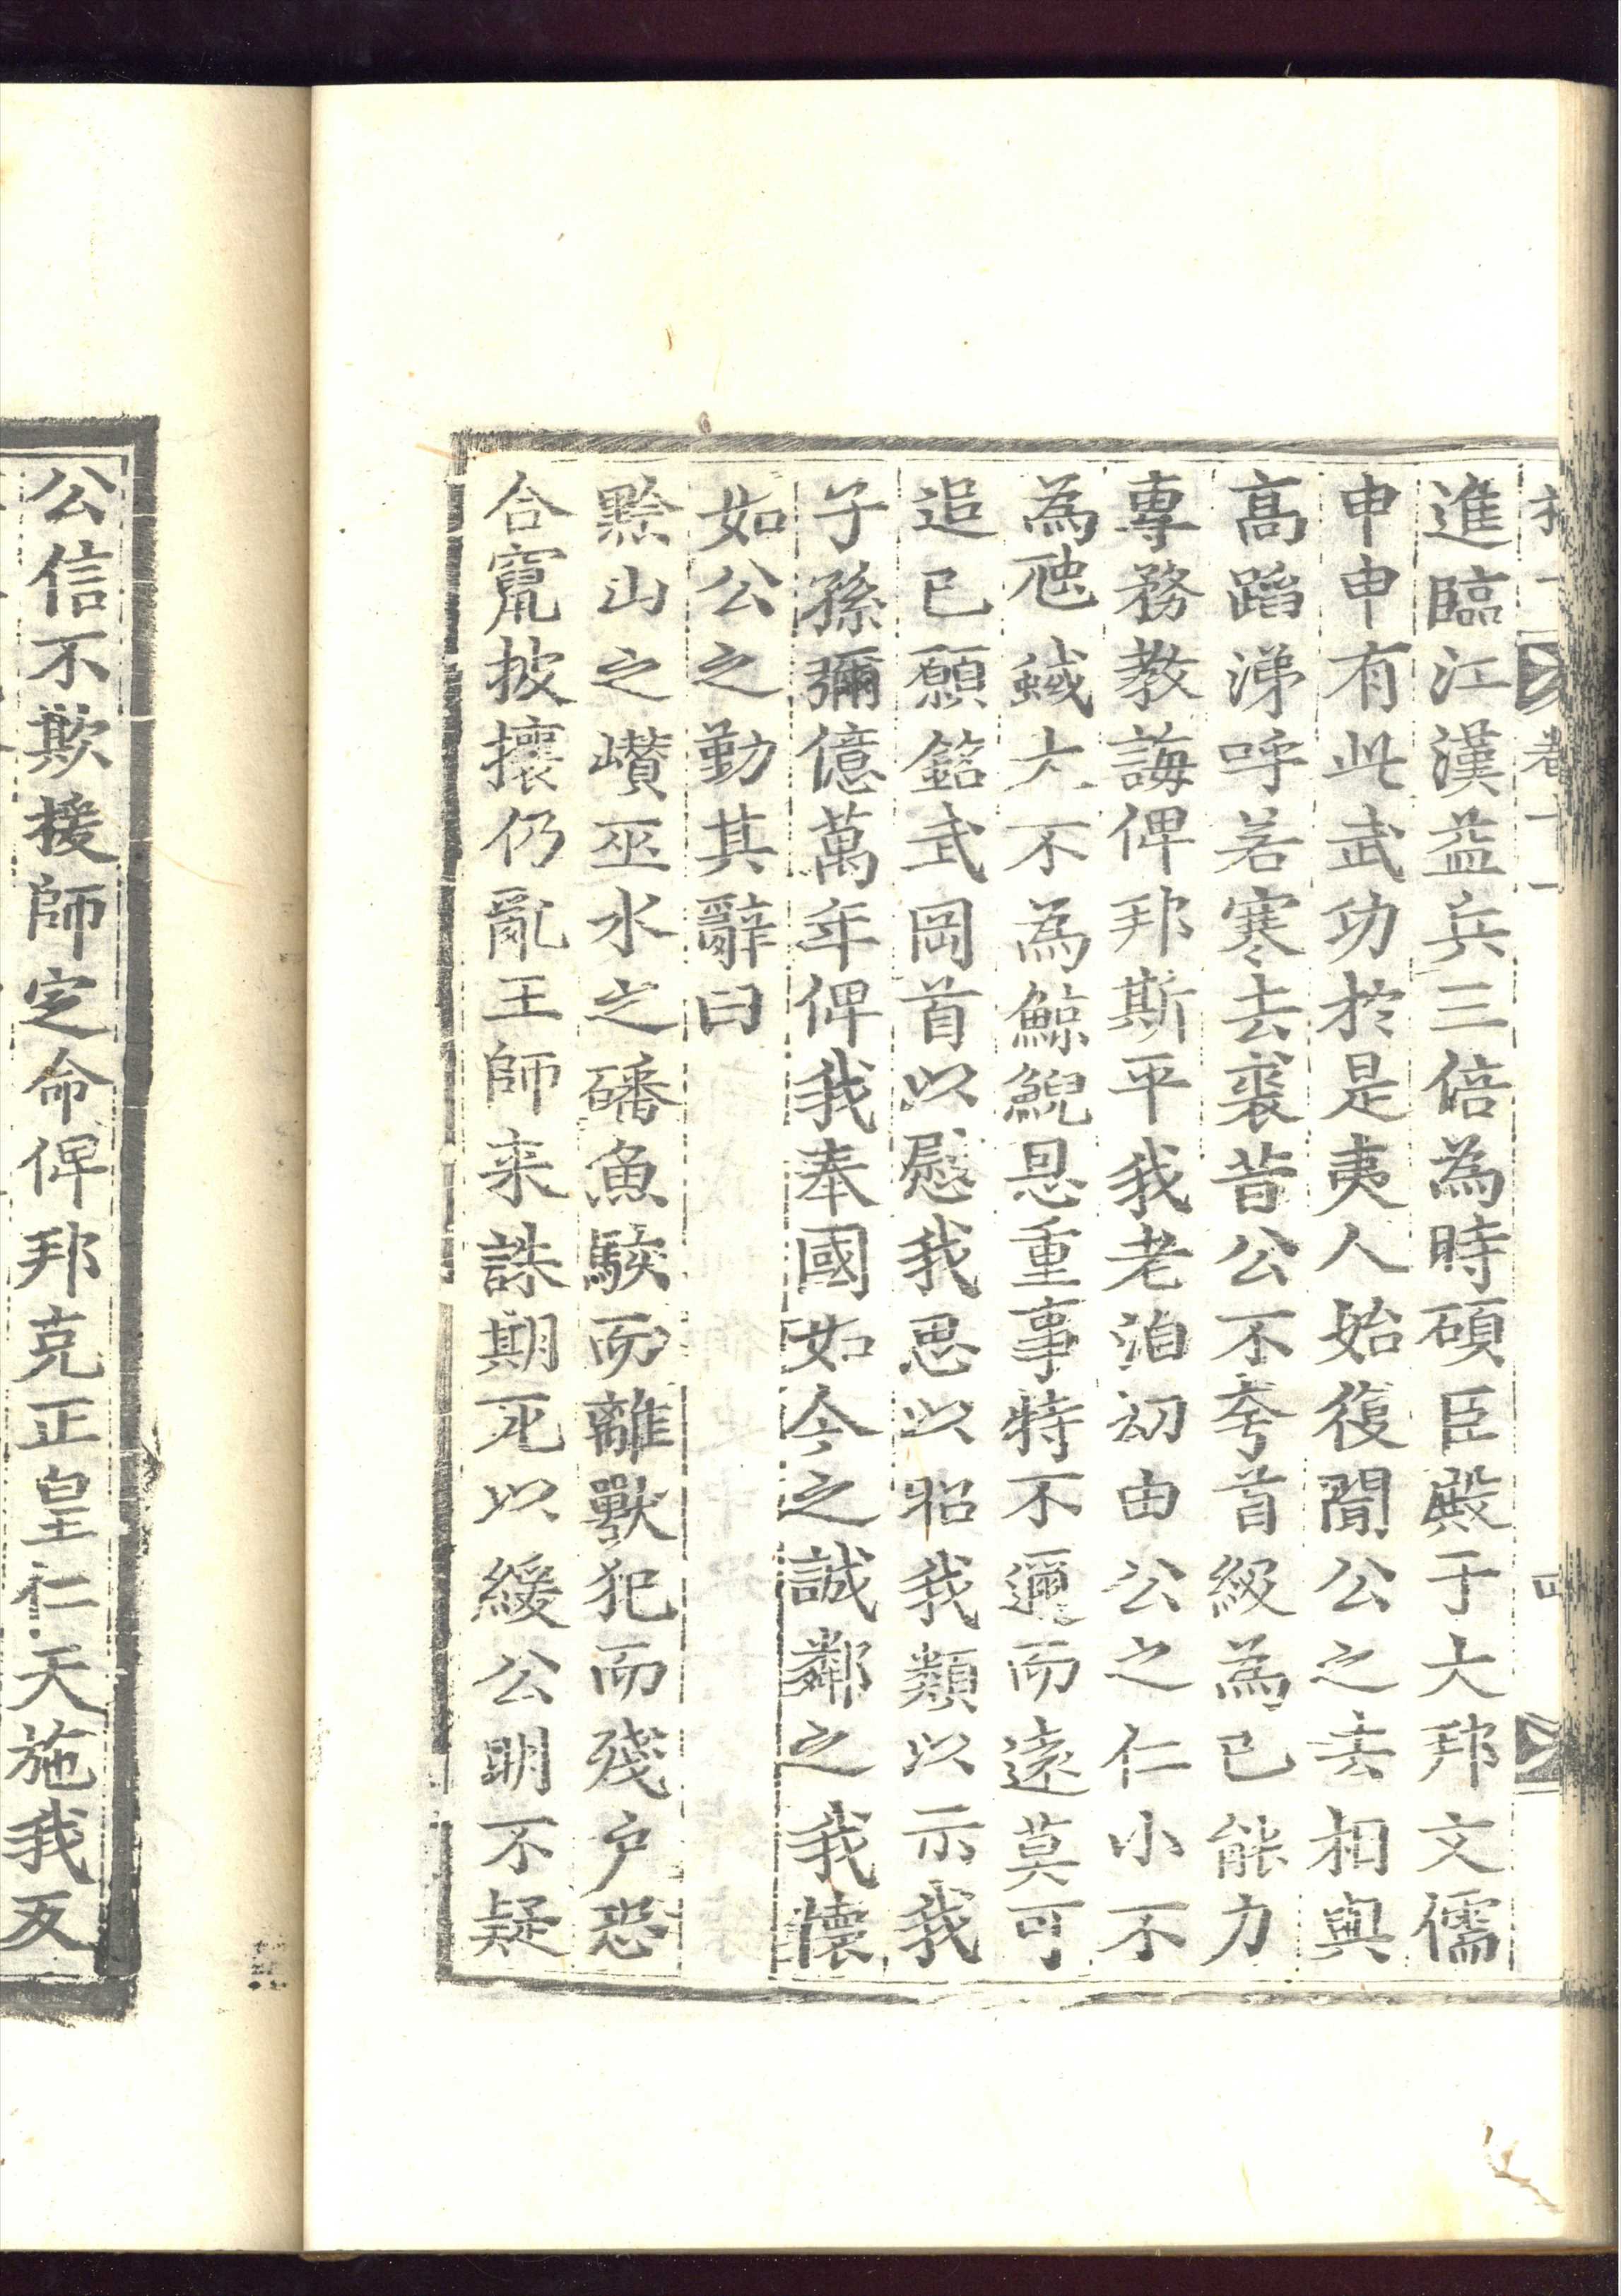 進臨江漢益兵三倍為時碩臣殿于大邦文儒
申申有此武功於是夷人始復聞公之去相與
高蹈涕呼若寒去裘昔公不夸首級為已能力
專務教誨俾邦斯平我老洎初由公之仁小不
為虺蜮大不為鯨鯢恩重事特不邇而遠莫可
追已願銘武岡首以慰我思以昭我類以示我
子孫彌億萬年俾我奉國如今之誠鄰之我懷
如公之勤其辭曰
黔山之巑巫水之磻魚駭而離獸犯而殘戶恐
合竄披攘仍亂王師来誅期死以緩公明不疑
公信不欺援師定命俾邦克正皇仁天施我反